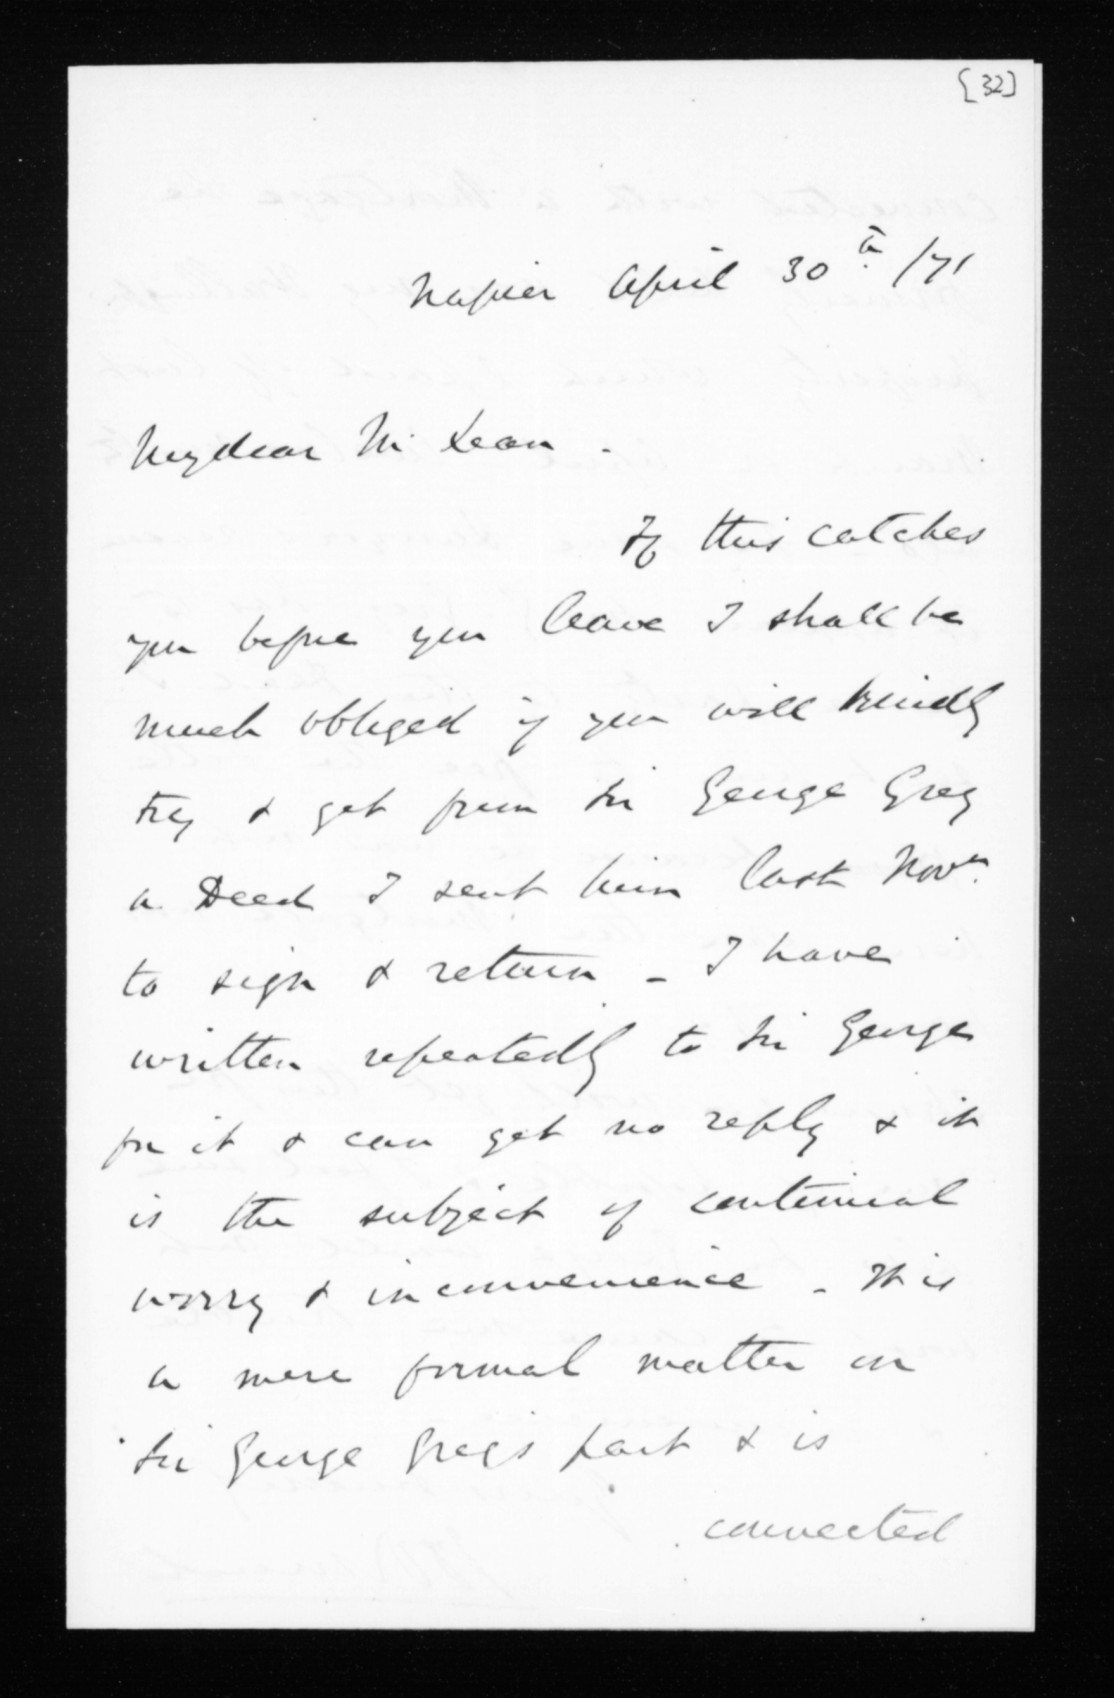 [32]
Napier April 30th /71
My dear McLean
If this catches
you before you leave I shall be
much obliged if you will kindly
try & get from Sir George Grey
a Deed I sent him last Novr.
to sign & return - I have
written repeatedly to Sir George
for it & can get no reply & it
is the subject of continual
worry & inconvenience - It is
a mere formal matter on
Sir George Greys part & is
connected